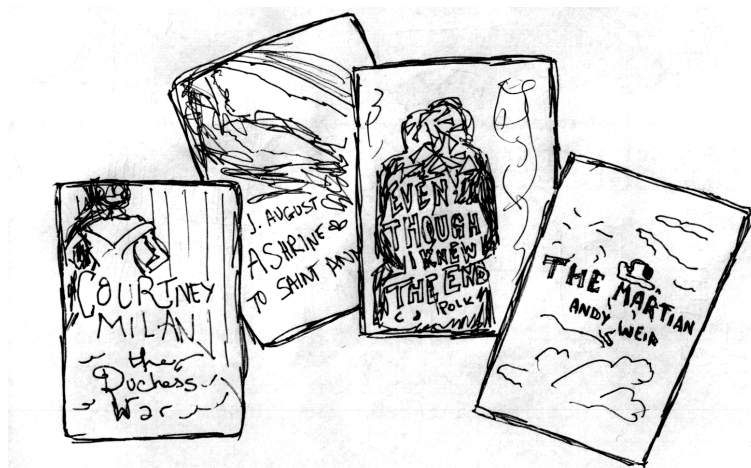 COURTNEY
MILAN
the
Duchess
War
J. AUGUST
A SHRINE
TO SAINT
EVEN
THOUGH
I KNEW
THE END
POLK
THE MARTIAN
ANDY WEIR